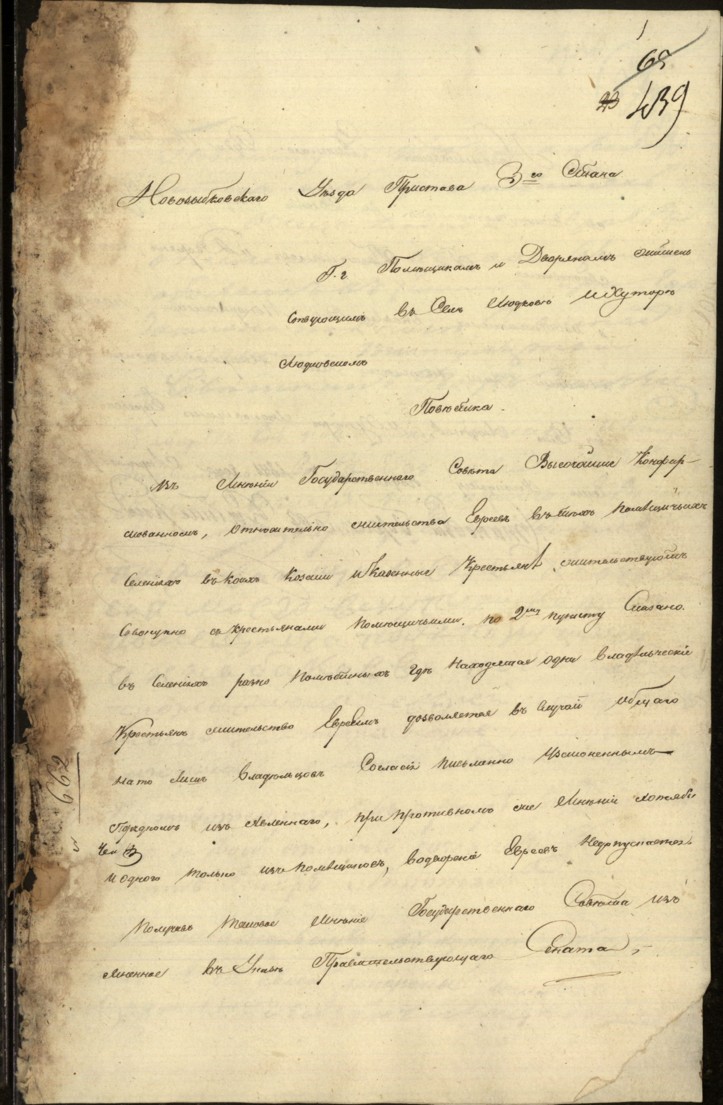 65
43 439
Новозыбковскаго Уѣзда Пристава 3го Стана
Г.г. Помѣщикамъ и Дворянамъ жительствующимъ
въ Селѣ и Хуторѣ
Повѣстка.
Въ Мнѣніи Государственнаго Совѣта Высочайше Конфирмованномъ,
относительно жительства Евреевъ въ такихъ помѣщичьихъ
Селеніяхъ въ коихъ Козаки и Казенные Крестьяне жительствуютъ
Совокупно съ крестьянами помѣщичьими. по 2му пункту Сказано.
въ Селеніяхъ разно помѣстныхъ гдѣ находятся одни владѣльческіе
Крестьяне жительство Евреямъ дозволяется въ случаѣ общаго
на то всѣхъ Владѣльцовъ Согласія письменно изъясненнымъ
при противномъ же мнѣніи хотябы
и одного только изъ помѣщиковъ, водвореніе Евреевъ недопускается
Получивъ таковое мнѣніе Государственнаго Совѣта изъясненное
въ Указѣ Правительствующаго Сената,
662